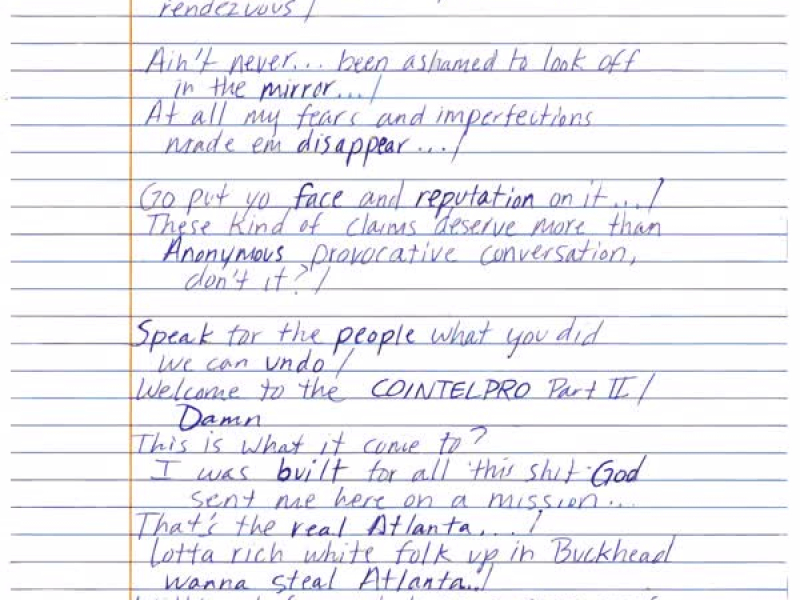 rendezvous /
Ain't never... been ashamed to look off
in the mirror... /
At all my fears and imperfections
made em disappear... /
Go put yo face and reputation on it... /
These kind of claims deserve more than
Anonymous provocative conversation,
don't it? /
Speak for the people what you did
we can undo /
Welcome to the COINTELPRO Part II /
Damn
This is what it come to?
I was built for all this shit God
sent me here on a mission...
That's the real Atlanta... /
Lotta rich white folk up in Buckhead
wanna steal Atlanta.. /